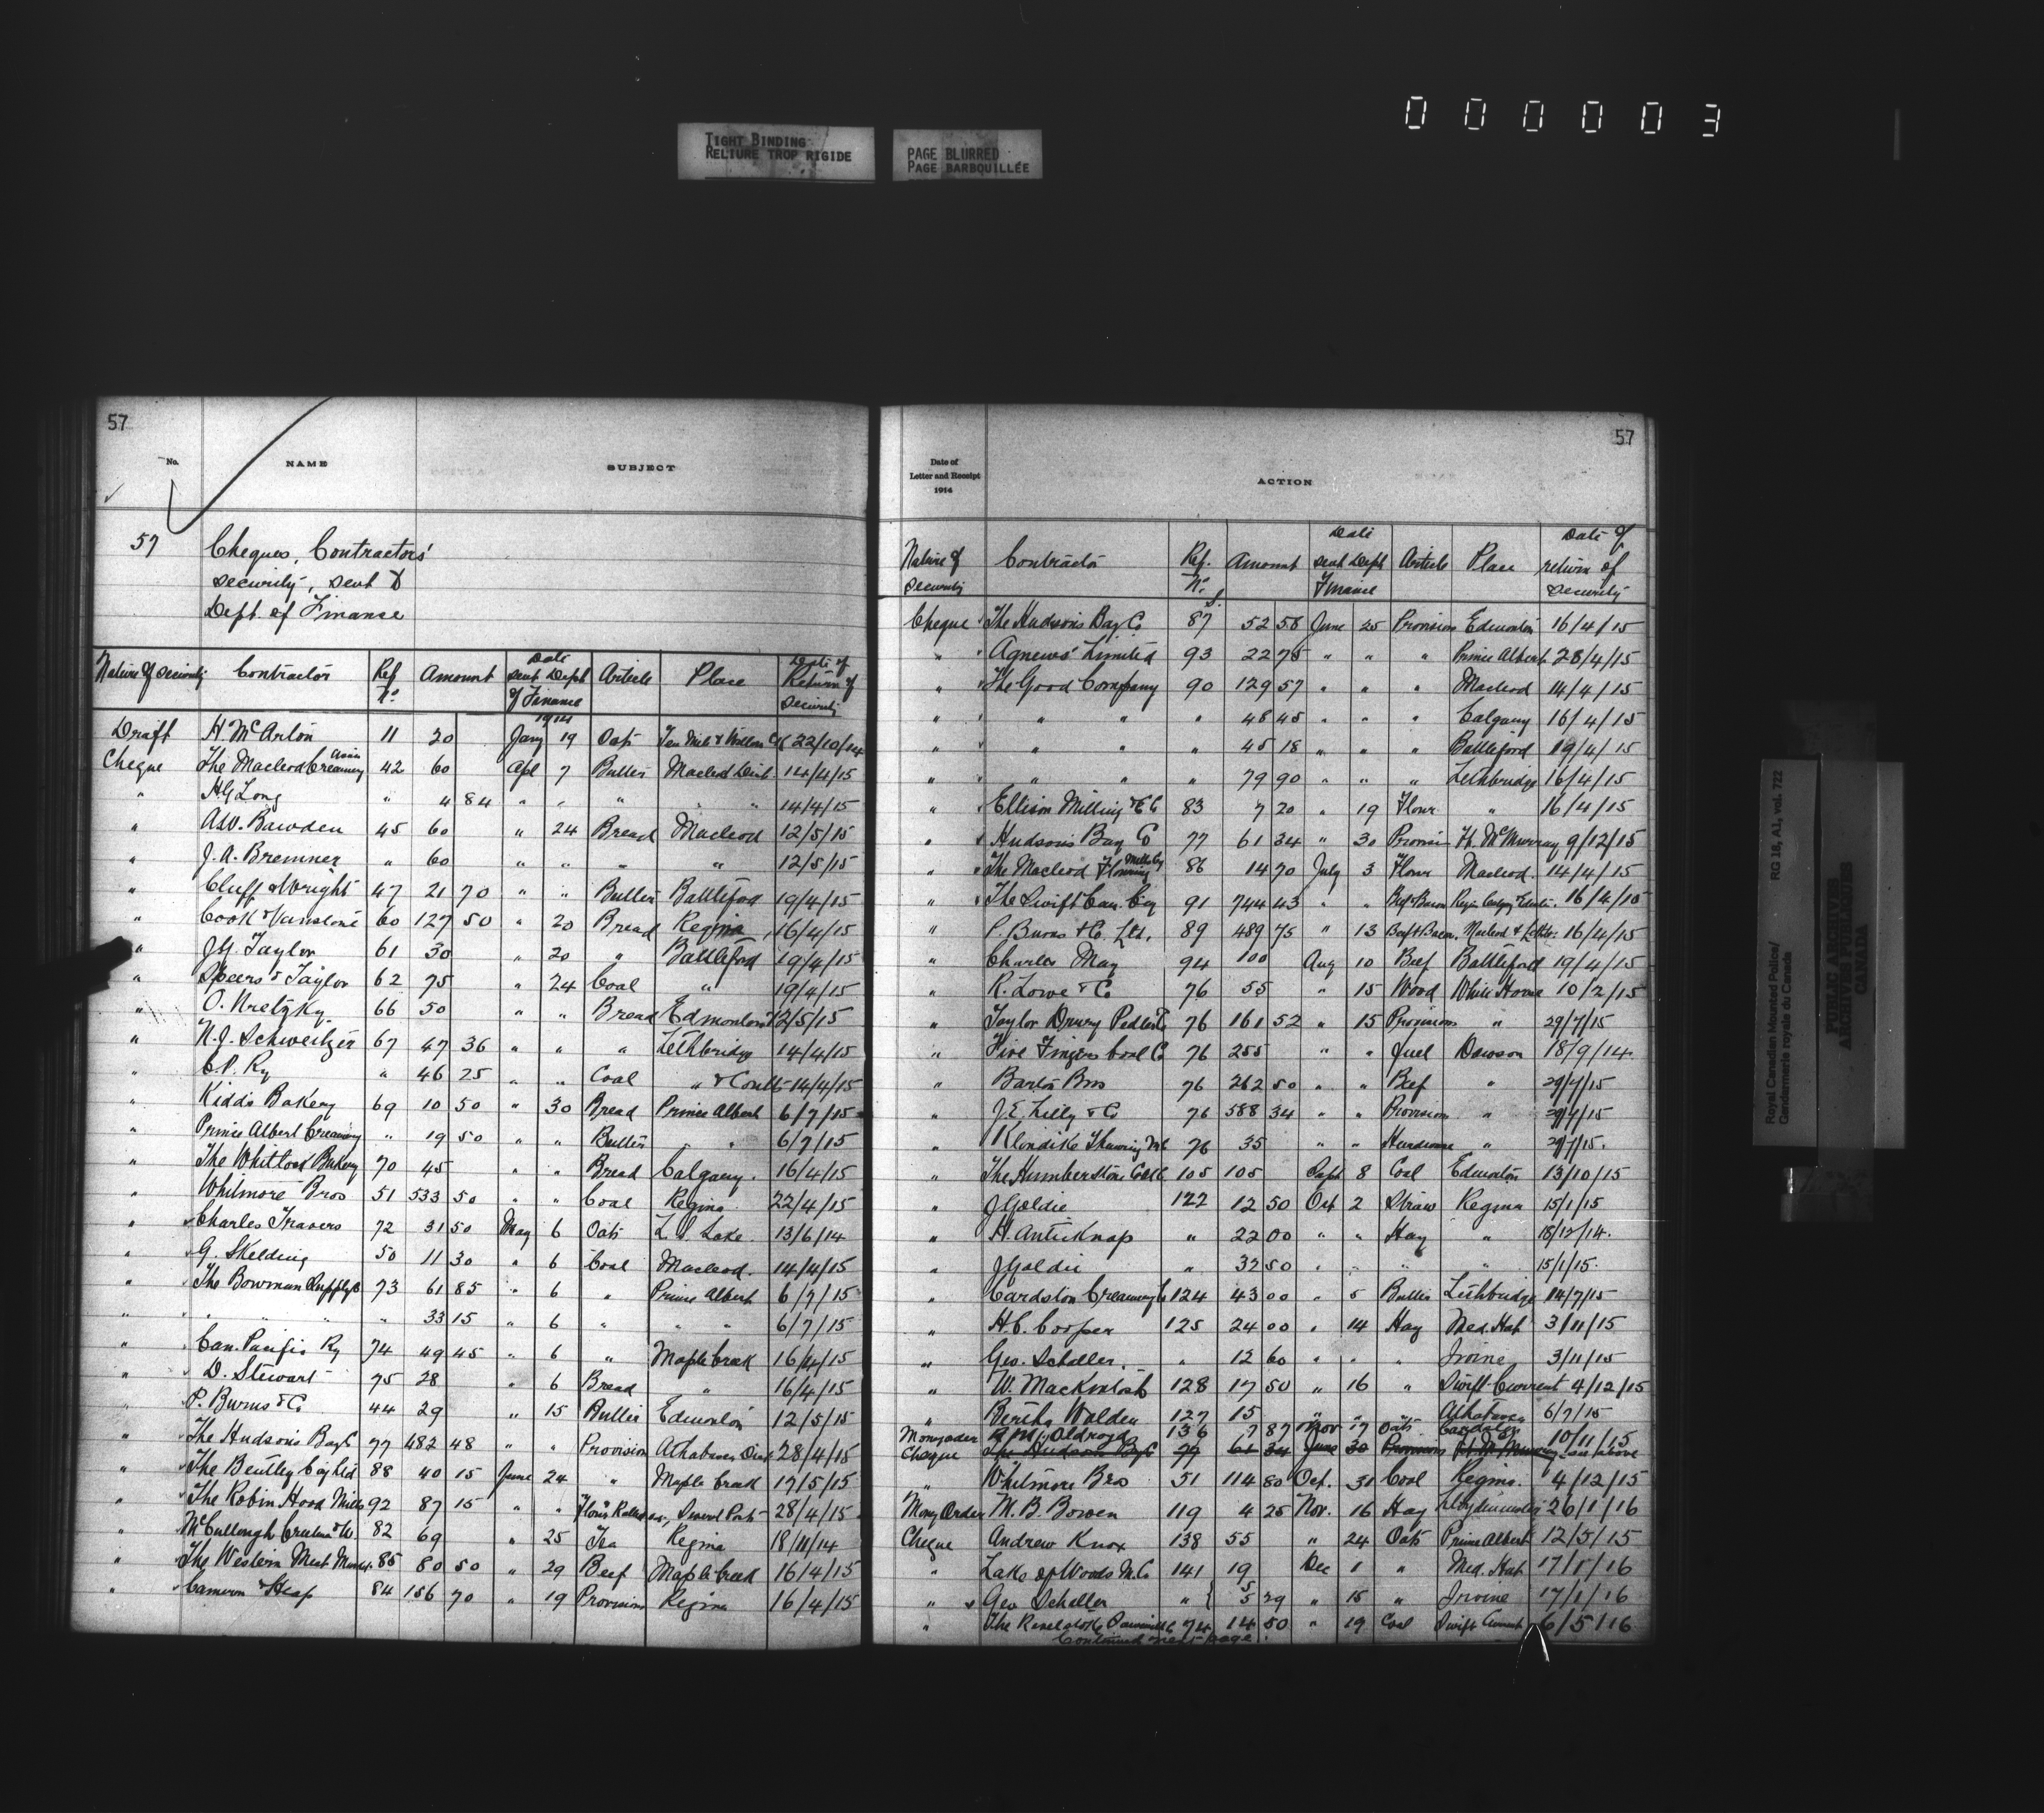 000003
TIGHT BINDING
RELIURE TROP RIGIDE
PAGE BLURRED
PAGE BARBOUILLÉE
57
No. NAME SUBJECT
57 Cheques, Contractors'
security, sent to
Dept. of Finance
Nature of Security Contractor Ref No. Amount Date sent Dept of Finance Article Place Date of Return of Security
1914
Draft H. McArton 11 20 Jany 19 Oats Ten Mile & 22/10/14
Cheque The Macleod Creamery Assn 42 60 Apl 7 Butter Macleod Dist 14/4/15
" H.G. Long " 4 84 " " " " " 14/4/15
" A.W. Bawden 45 60 " 24 Bread Macleod 12/5/15
" J.A. Bremner " 60 " " " " 12/5/15
" Cluff & Wright 47 21 70 " " Butter Battleford 19/4/15
" Cook & Vanstone 60 127 50 " 20 Bread Regina 16/4/15
" J.Y. Taylor 61 30 " 20 " Battleford 19/4/15
" Speers & Taylor 62 75 " 24 Coal " 19/4/15
" O. Nretzky 66 50 " " Bread Edmonton 12/5/15
" N.J. Schweitzer 67 47 36 " " " Lethbridge 14/4/15
" C.P. Ry " 46 25 " " Coal " & Coutts 14/4/15
" Kidd's Bakery 69 10 50 " 30 Bread Prince Albert 6/7/15
" Prince Albert Creamery " 19 50 " " Butter " " 6/7/15
" The Whitlock Bakery 70 45 " " Bread Calgary. 16/4/15
" Whitmore Bros 51 533 50 " " Coal Regina 22/4/15
" Charles Travers 72 31 50 May 6 Oats L.S. Lake 13/6/14
" G. Skelding 50 11 30 " 6 Coal Macleod. 14/4/15
" The Bowman Supply Co 73 61 85 " 6 " Prince Albert 6/7/15
" " " " " 33 15 " 6 " " " 6/7/15
" Can. Pacific Ry 74 49 45 " 6 " Maple Creek 16/4/15
" D. Stewart 75 28 " 6 Bread " 16/4/15
" P. Burns & Co 44 29 " 15 Butter Edmonton 12/5/15
" The Hudson's Bay Co 77 482 48 " " Provision Athabasca Dist 28/4/15
" The Bentley Coy Ltd 88 40 15 June 24 " Maple Creek 17/5/15
" The Robin Hood Mills 92 87 15 " " Flour Rolled oats, Several Posts 28/4/15
" McCullough 82 69 " 25 Tea Regina 18/11/14
" The Western Meat Market 85 80 50 " 29 Beef Maple Creek 16/4/15
" Cameron & Heap 84 156 70 " 19 Provisions Regina 16/4/15
57
Date of
Letter and Receipt
1914
ACTION
Nature of security Contractor Ref. No. Amount Date sent Dept Finance Article Place Date of return of security
$
Cheque The Hudson's Bay Co 87 52 58 June 25 Provision Edmonton 16/4/15
" Agnews' Limited 93 22 75 " " " Prince Albert 28/4/15
" The Good Company 90 129 57 " " " Macleod 14/4/15
" " " " " 48 45 " " " Calgary 16/4/15
" " " " " 45 18 " " " Battleford 19/4/15
" " " " " 79 90 " " " Lethbridge 16/4/15
" Ellison Milling & E Co 83 7 20 " 19 Flour " 16/4/15
" Hudson's Bay Co 77 61 34 " 30 Provisi Ft. McMurray 9/12/15
" The Macleod Flouring Mills Coy 86 14 70 July 3 Flour Macleod. 14/4/15
" The Swift Can. Coy 91 744 43 " " Beef & Bacon Regin Calgary Edmtn. 16/4/15
" P. Burns & Co. Ltd. 89 489 75 " 13 Beef & Bacon. Macleod & Lethb: 16/4/15
" Charles May 94 100 Aug 10 Beef Battleford 19/4/15
" R. Lowe & Co 76 55 " 15 Wood White Horse 10/2/15
" Taylor Drury Pedlar Co 76 161 52 " 15 Provisions " 29/7/15
" Five Fingers Coal Co 76 255 " " Fuel Dawson 18/9/14
" Barton Bros 76 262 50 " " Beef " 29/7/15
" J.E. Lilly & Co 76 588 34 " " Provision " 29/7/15
" Klondike Thawing M Co 76 35 " " Hardware " 29/7/15.
" The Humberstone Coal Co 105 105 Sept 8 Coal Edmonton 13/10/15
" J Goldie 122 12 50 Oct 2 Straw Regina 15/1/15
" H. Anticknap " 22 00 " " Hay " 18/12/14.
" J Goldie " 32 50 " " " " 15/1/15.
" Cardston Creamery Co 124 43 00 " 5 Butter Lethbridge 14/7/15
" H.C. Cooper 125 24 00 " 14 Hay Med. Hat 3/11/15
" Geo. Schaller. " 12 60 " " " Irvine 3/11/15
" W. MacKintosh 128 17 50 " 16 " Swift Current 4/12/15
" Bertha Walden 127 15 " " " Athabasca 6/7/15
Moneyorder Oldroyd 136 7 87 Nov 17 Oats Cardston 10/11/15
Cheque The Hudson Bay Co 77 61 34 June 30 Provisions Ft. McMurray see above
" Whitmore Bros 51 114 80 Oct. 31 Coal Regina. 4/12/15
Money Order M.B. Bowen 119 4 25 Nov. 16 Hay Lloydminster 26/1/16
Cheque Andrew Knox 138 55 " 24 Oats Prince Albert 12/5/15
" Lake of Woods M. Co 141 19 Dec 1 " Med. Hat 17/1/16
" Geo Schaller " { 5 5 29 " 15 " Irvine 17/1/16
" The Revelstoke Sawmill Co 74 14 50 " 19 Coal Swift Current 6/5/16
Continued next page.
Royal Canadian Mounted Police/
Gendarmerie royale du Canada
RG 18, A1, vol. 722
PUBLIC ARCHIVES
ARCHIVES PUBLIQUES
CANADA